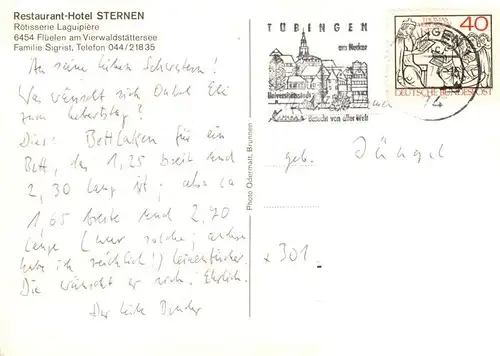 Restaurant-Hotel STERNEN
Rôtisserie Laguipière
6454 Flüelen am Vierwaldstättersee
Familie Sigrist, Telefon 044/21835
An seine lieben Schwestern!
Was wünscht sich Onkel Eli
zum Geburtstag?
Dies: Bettlaken für ein
Bett, das 1,25 breit und
2,30 lang ist; also ca
1,65 breite und 2,70
lange (nur solche; andere
habe ich reichlich!) Leinentücher.
Die wünscht er sich. Ehrlich.
Der liebe Bruder
Photo Odermatt, Brunnen
TÜBINGEN
am Neckar
Universitätsstadt
Besucht von aller Welt
THOMAS
40
DEUTSCHE BUNDESPOST
74
geb. Jüngel
x 301.